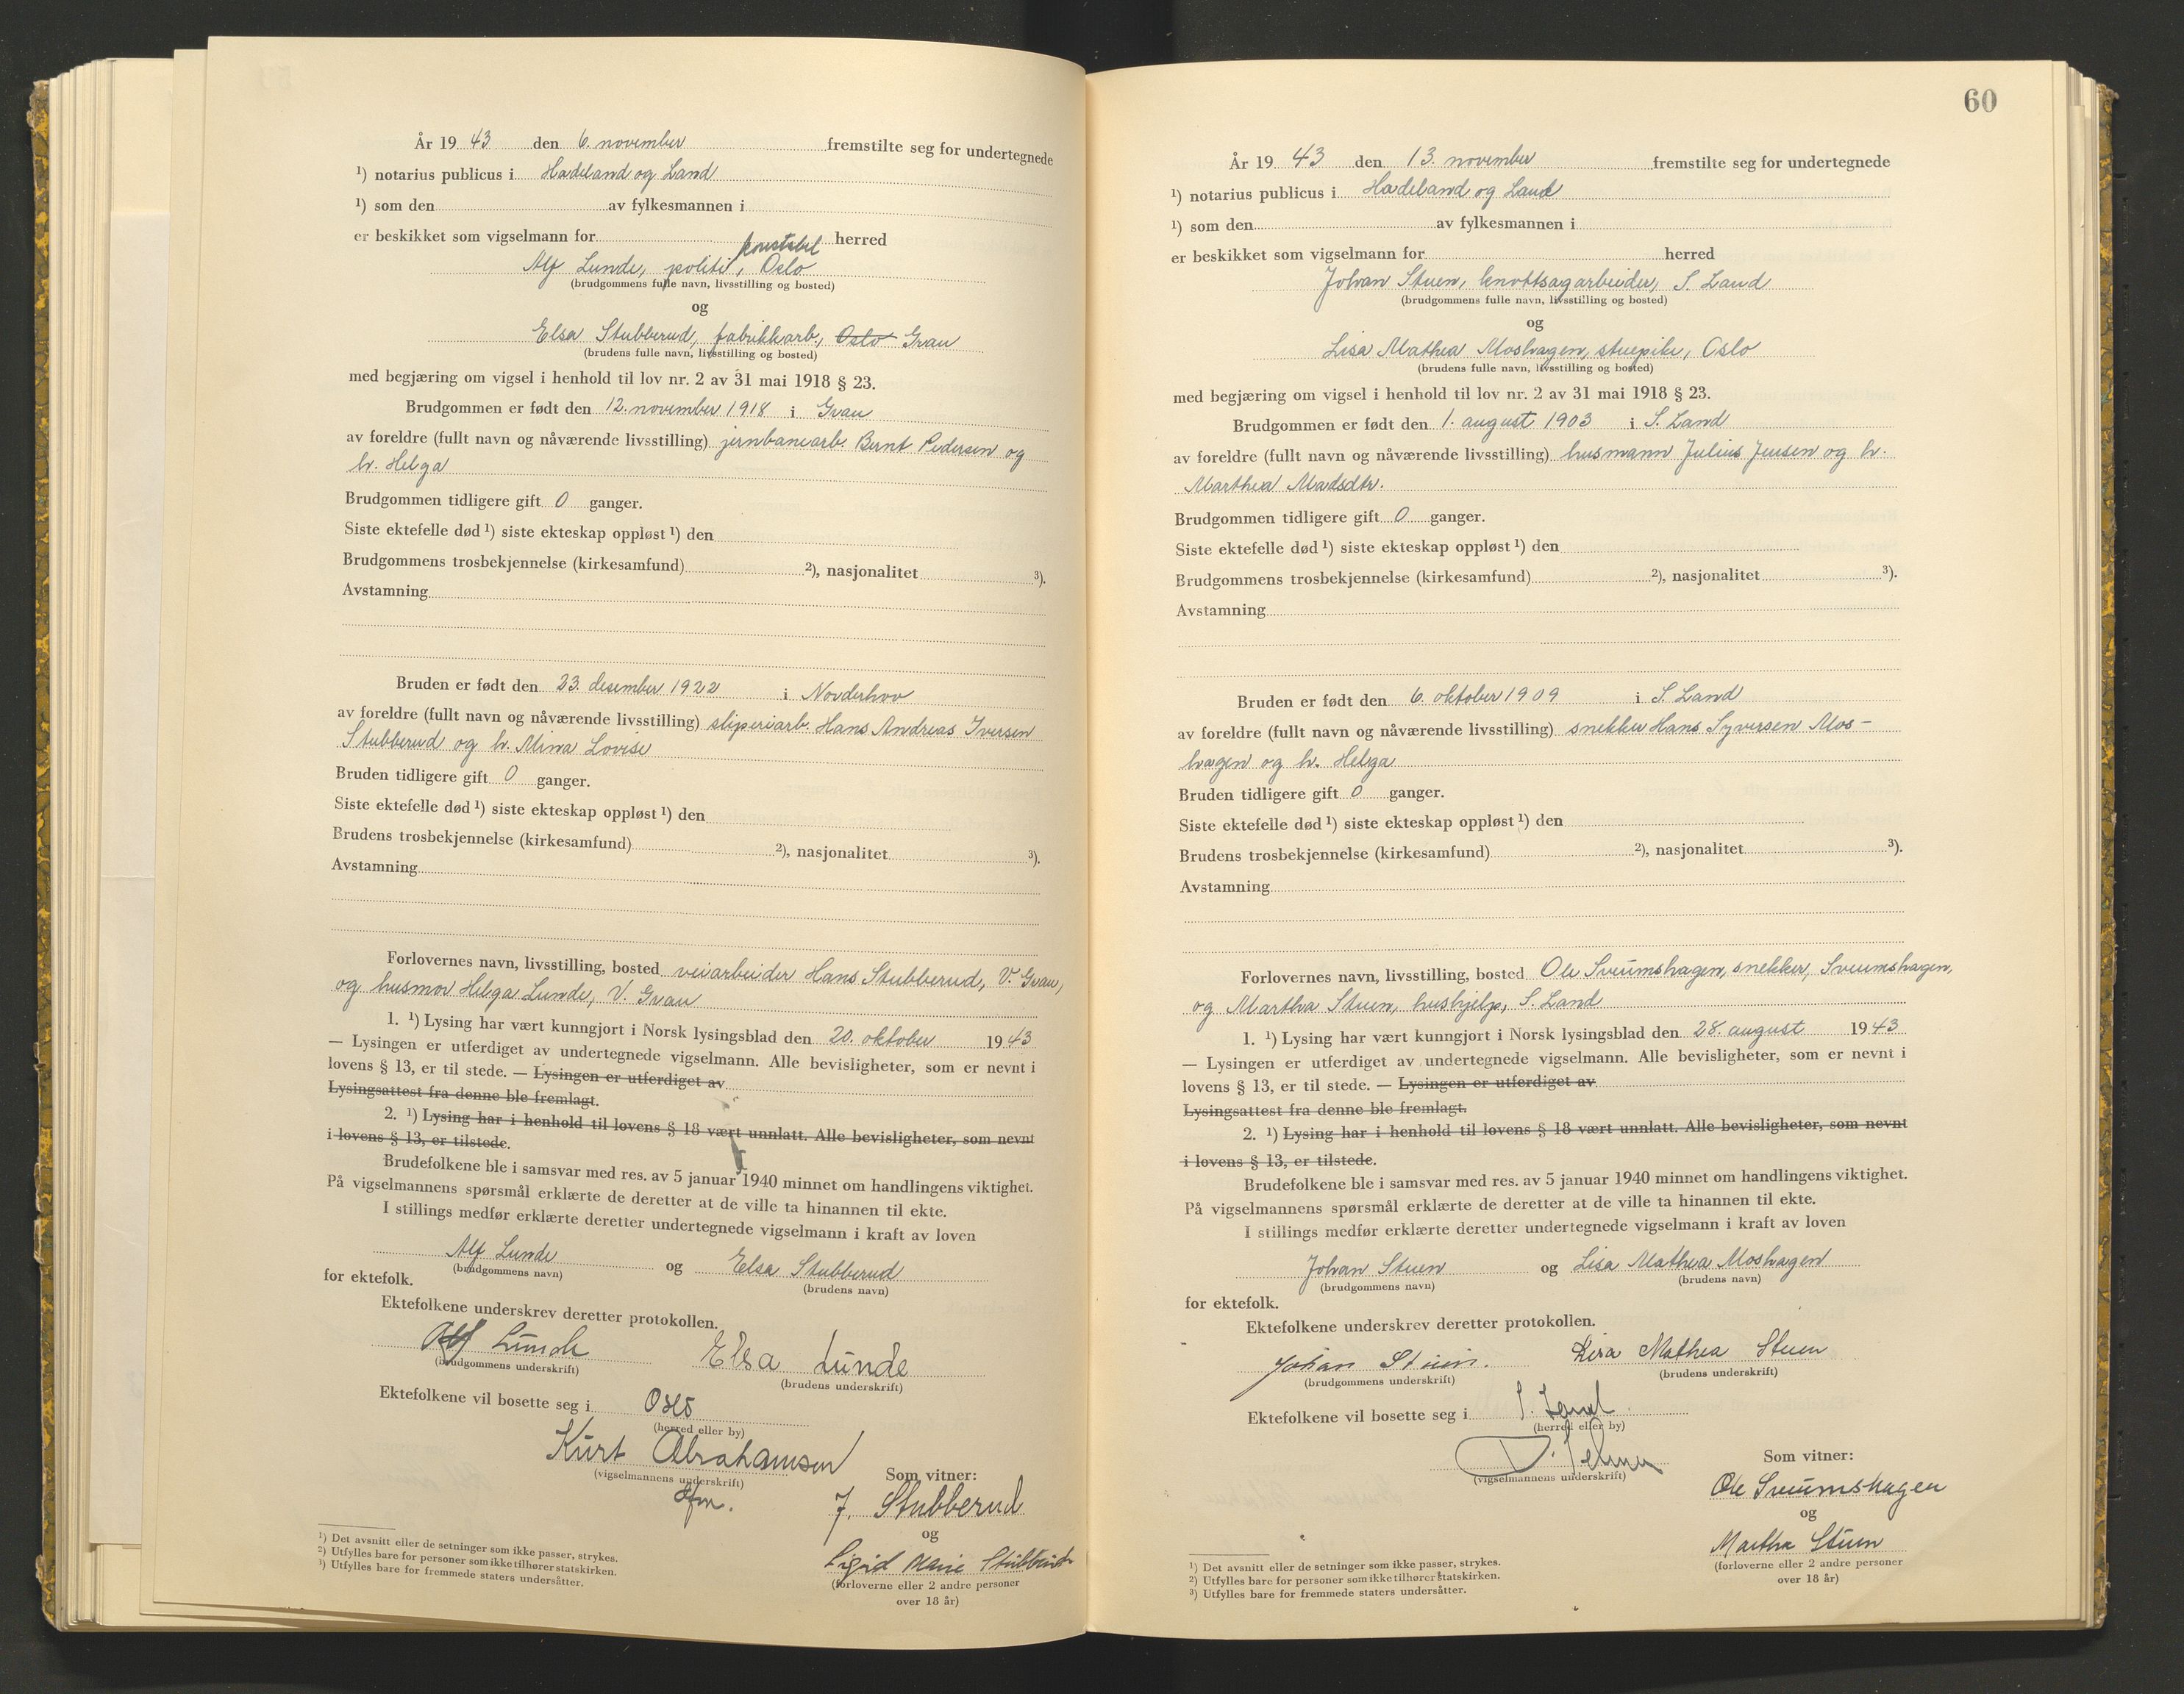 År 19 43 den 6. november fremstilte seg for undertegnede
¹) notarius publicus i Hadeland og Land
¹) som den av fylkesmannen i
er beskikket som vigselmann for herred
konstabel
Alf Lunde, politi, Oslo
(brudgommens fulle navn, livsstilling og bosted)
og
Elsa Stubberud, fabrikkarb., Oslo Gran
(brudens fulle navn, livsstilling og bosted)
med begjæring om vigsel i henhold til lov nr. 2 av 31 mai 1918 § 23.
Brudgommen er født den 12. november 1918 i Gran
av foreldre (fullt navn og nåværende livsstilling) jernbanearb. Bernt Pedersen og
h. Helga
Brudgommen tidligere gift 0 ganger.
Siste ektefelle død ¹) siste ekteskap oppløst ¹) den
Brudgommens trosbekjennelse (kirkesamfund) ²), nasjonalitet ³).
Avstamning
Bruden er født den 23. desember 1922 i Norderhov
av foreldre (fullt navn og nåværende livsstilling) sliperiarb. Hans Andreas Iversen
Stubberud og h. Mina Lovise
Bruden tidligere gift 0 ganger.
Siste ektefelle død ¹) siste ekteskap oppløst ¹) den
Brudens trosbekjennelse (kirkesamfund) ²), nasjonalitet ³).
Avstamning
Forlovernes navn, livsstilling, bosted veiarbeider Hans Stubberud, V. Gran,
og husmor Helga Lunde, V. Gran
1. ¹) Lysing har vært kunngjort i Norsk lysingsblad den 20. oktober 19 43
— Lysingen er utferdiget av undertegnede vigselmann. Alle bevisligheter, som er nevnt i
lovens § 13, er til stede. — Lysingen er utferdiget av
Lysingsattest fra denne ble fremlagt.
2. ¹) Lysing har i henhold til lovens § 18 vært unnlatt. Alle bevisligheter, som nevnt
i lovens § 13, er tilstede.
Brudefolkene ble i samsvar med res. av 5 januar 1940 minnet om handlingens viktighet.
På vigselmannens spørsmål erklærte de deretter at de ville ta hinannen til ekte.
I stillings medfør erklærte deretter undertegnede vigselmann i kraft av loven
Alf Lunde og Elsa Stubberud
(brudgommens navn) (brudens navn)
for ektefolk.
Ektefolkene underskrev deretter protokollen.
Alf Lunde Elsa Lunde
(brudgommens underskrift) (brudens underskrift)
Ektefolkene vil bosette seg i Oslo
(herred eller by)
Kurt Abrahamsen
(vigselmannens underskrift)
Som vitner:
J. Stubberud
og
Sigrid Marie Stubberud
(forloverne eller 2 andre personer
over 18 år)
¹) Det avsnitt eller de setninger som ikke passer, strykes.
²) Utfylles bare for personer som ikke tilhører statskirken.
³) Utfylles bare for fremmede staters undersåtter.
60
År 19 43 den 13. november fremstilte seg for undertegnede
¹) notarius publicus i Hadeland og Land
¹) som den av fylkesmannen i
er beskikket som vigselmann for herred
Johan Stuen, knottsagarbeider, S. Land
(brudgommens fulle navn, livsstilling og bosted)
og
Lisa Mathea Moshagen, stuepike, Oslo
(brudens fulle navn, livsstilling og bosted)
med begjæring om vigsel i henhold til lov nr. 2 av 31 mai 1918 § 23.
Brudgommen er født den 1. august 1903 i S. Land
av foreldre (fullt navn og nåværende livsstilling) husmann Julius Jensen og h.
Marthea Madsdtr.
Brudgommen tidligere gift 0 ganger.
Siste ektefelle død ¹) siste ekteskap oppløst ¹) den
Brudgommens trosbekjennelse (kirkesamfund) ²), nasjonalitet ³).
Avstamning
Bruden er født den 6. oktober 1909 i S. Land
av foreldre (fullt navn og nåværende livsstilling) snekker Hans Syversen Mos-
hagen og h. Helga
Bruden tidligere gift 0 ganger.
Siste ektefelle død ¹) siste ekteskap oppløst ¹) den
Brudens trosbekjennelse (kirkesamfund) ²), nasjonalitet ³).
Avstamning
Forlovernes navn, livsstilling, bosted Ole Sveumshagen, snekker, Sveumshagen,
og Martha Stuen, hushjelp, S. Land
1. ¹) Lysing har vært kunngjort i Norsk lysingsblad den 28. august 19 43
— Lysingen er utferdiget av undertegnede vigselmann. Alle bevisligheter, som er nevnt i
lovens § 13, er til stede. — Lysingen er utferdiget av
Lysingsattest fra denne ble fremlagt.
2. ¹) Lysing har i henhold til lovens § 18 vært unnlatt. Alle bevisligheter, som nevnt
i lovens § 13, er tilstede.
Brudefolkene ble i samsvar med res. av 5 januar 1940 minnet om handlingens viktighet.
På vigselmannens spørsmål erklærte de deretter at de ville ta hinannen til ekte.
I stillings medfør erklærte deretter undertegnede vigselmann i kraft av loven
Johan Stuen og Lisa Mathea Moshagen
(brudgommens navn) (brudens navn)
for ektefolk.
Ektefolkene underskrev deretter protokollen.
Johan Stuen. Lisa Mathea Stuen
(brudgommens underskrift) (brudens underskrift)
Ektefolkene vil bosette seg i S. Land.
(herred eller by)
(vigselmannens underskrift)
Som vitner:
Ole Sveumshagen
og
Martha Stuen
(forloverne eller 2 andre personer
over 18 år)
¹) Det avsnitt eller de setninger som ikke passer, strykes.
²) Utfylles bare for personer som ikke tilhører statskirken.
³) Utfylles bare for fremmede staters undersåtter.